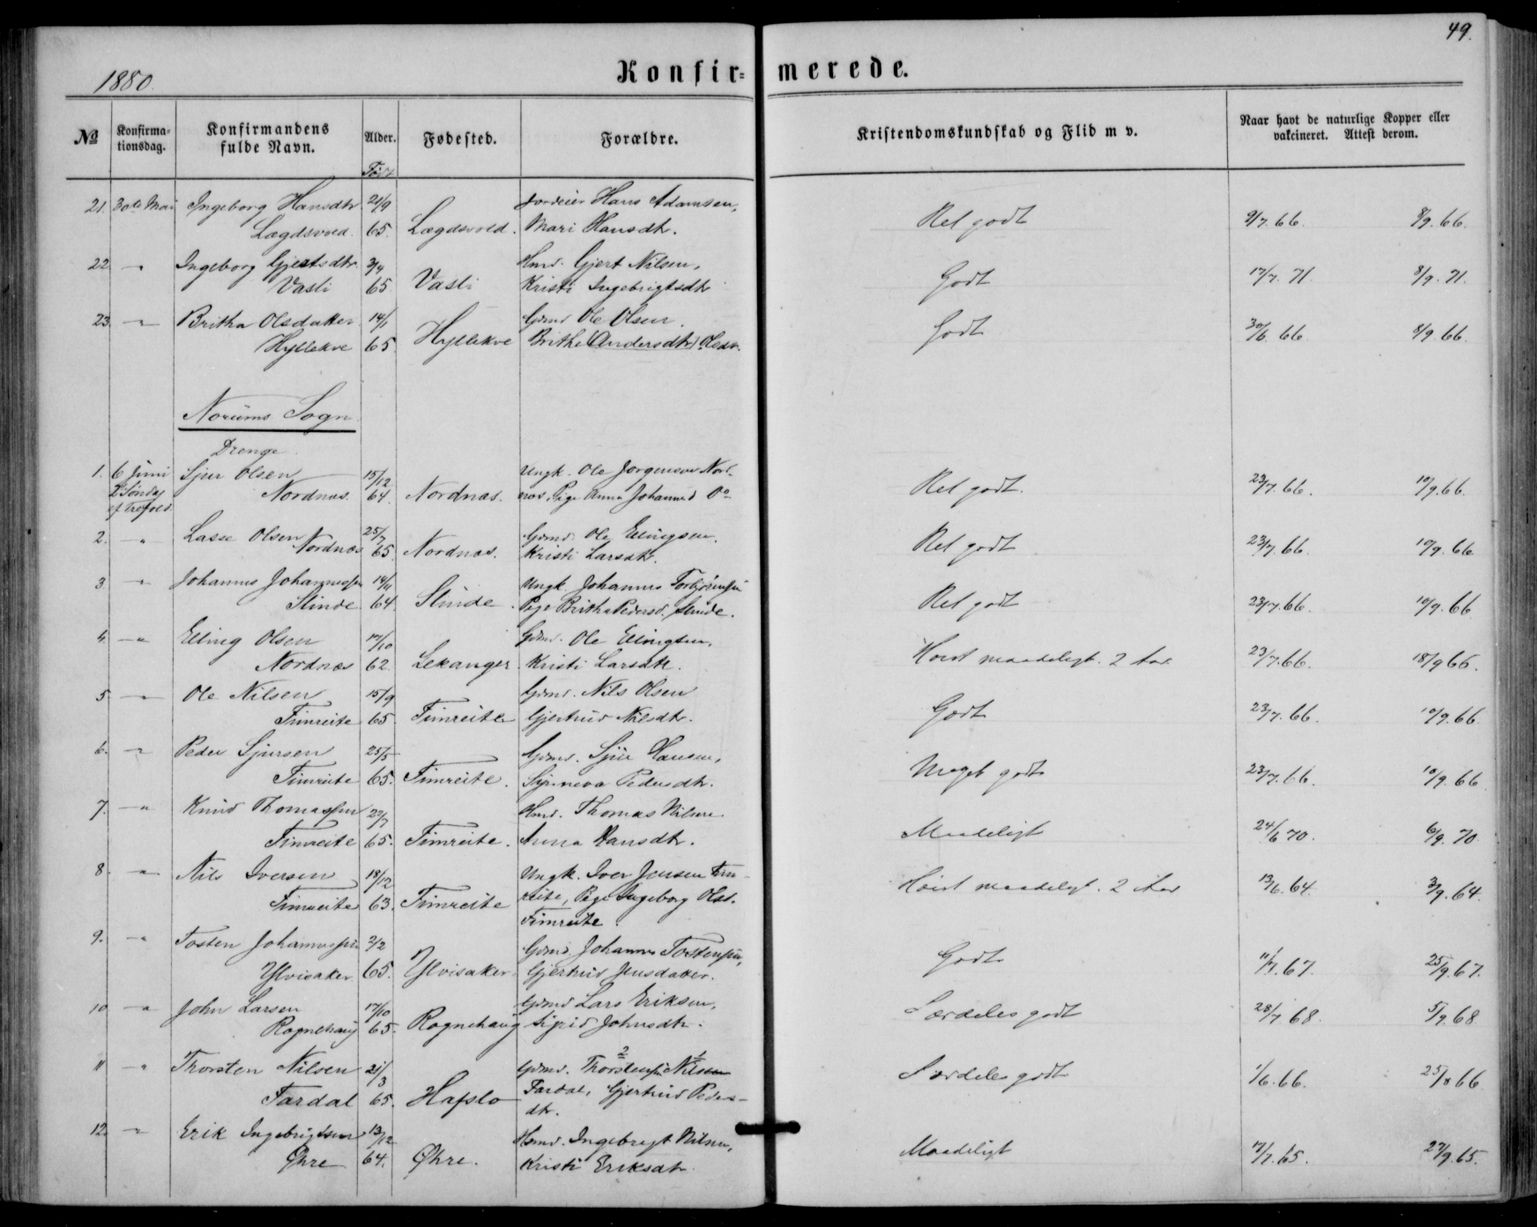 49.
1880.
Konfir= merede.
№ Konfirma- tionsdag. Konfirmandens fulde Navn. Alder. Fødested. Forældre. Kristendomskundskab og Flid m v. Naar havt de naturlige Kopper eller vakcineret. Attest derom.
Født
21. 30te Mai Ingeborg Hansdtr. 21/9 Jordeier Hans Adamsen,
Lægdsvold. 65. Lægdsvold. Mari Hansdtr. Ret godt 9/7.66. 8/9.66.
22. " Ingeborg Gjertsdtr. 3/4 Hmd. Gjert Nilsen,
Vasli 65 Vasli Kristi Ingebrigtsdtr Godt 17/7.71. 8/9.71.
23. " Britha Olsdatter 14/1 Gdmd. Ole Olsen
Hyllekve 65. Hyllekve Brithe (Andersdtr) Olsdtr. Godt 30/6.66. 8/9.66.
Norums Sogn
Drenge
1. 6 Juni Sjur Olsen 15/12 Ungk. Ole Jørgensen Nord-
2 Søndag Nordnæs. 64. Nordnæs. næs, Pige Anna Johannesd Do Ret godt. 23/7.66. 10/9.66.
ef Trefold.
2. " Lasse Olsen 25/7 Gdmd. Ole Ellingsen.
Nordnæs 65. Nordnæs. Kristi Larsdtr. Ret godt 23/7.66. 10/9.66
3 " Johannes Johannessen 14/11 Ungk. Johannes Torbjørnsen
Slinde 64. Slinde. Pige Britha Pedersd. Slinde. Ret godt 23/7.66. 10/9.66
4. " Elling Olsen 17/10 Gdmd. Ole Ellingsen,
Nordnæs 62. Lekanger Kristi Larsdtr. Høist maadeligt. 2 Aar 23/7.66. 18/9 66.
5. " Ole Nilsen 15/9 Gdmd. Nils Olsen
Fimreite 65. Fimreite Gjertrud Nilsdtr. Godt 23/7.66. 10/9.66
6. " Peder Sjursen 25/5 Gdmd. Sjur Hansen,
Fimreite 65. Fimreite. Synneva Pedersdtr. Meget godt 23/7.66. 10/9.66
7. " Knud Thomassen 29/7 Hmd. Thomas Nilsen
Fimreite 65. Fimreite. Anna Hansdtr. Maadeligt 24/6 70. 6/9.70
8. " Nils Iversen 18/12 Ungk. Iver Jensen Fim-
Fimreite 63. Fimreite reite, Pige Ingeborg Olsd. Høist maadeligt. 2 Aar 13/6.64. 3/9.64.
Fimreite.
9. " Tosten Johannessen 2/2 Gdmd. Johannes Tostensen,
Ylvisaker 65. Ylvisaker Gjertrud Jensdatter. Godt 11/7.67. 25/9.67.
10 " John Larsen 17/10 Gdmd. Lars Eriksen,
Rognehaug 65. Rognehaug Sigrid Johnsdtr. Særdeles godt 28/7 68. 5/9.68
11 " Thorsten Nilsen 21/3 Gdmd. Thorstensen Nilsen
Fardal 65. Hafslo Fardal, Gjertrud Peders- Særdeles godt 1/6.66. 25/8 66
dtr.
12. " Erik Ingebrigtsen 13/12 Hsmd. Ingebregt Nilsen,
Øhre 64. Øhre. Kristi Eriksdtr Maadeligt 17/7.65. 27/9.65.